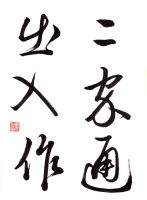 二家通
出入作